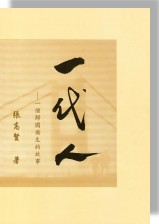 一代人
——一個歸國衛生的故事
張志賢 著